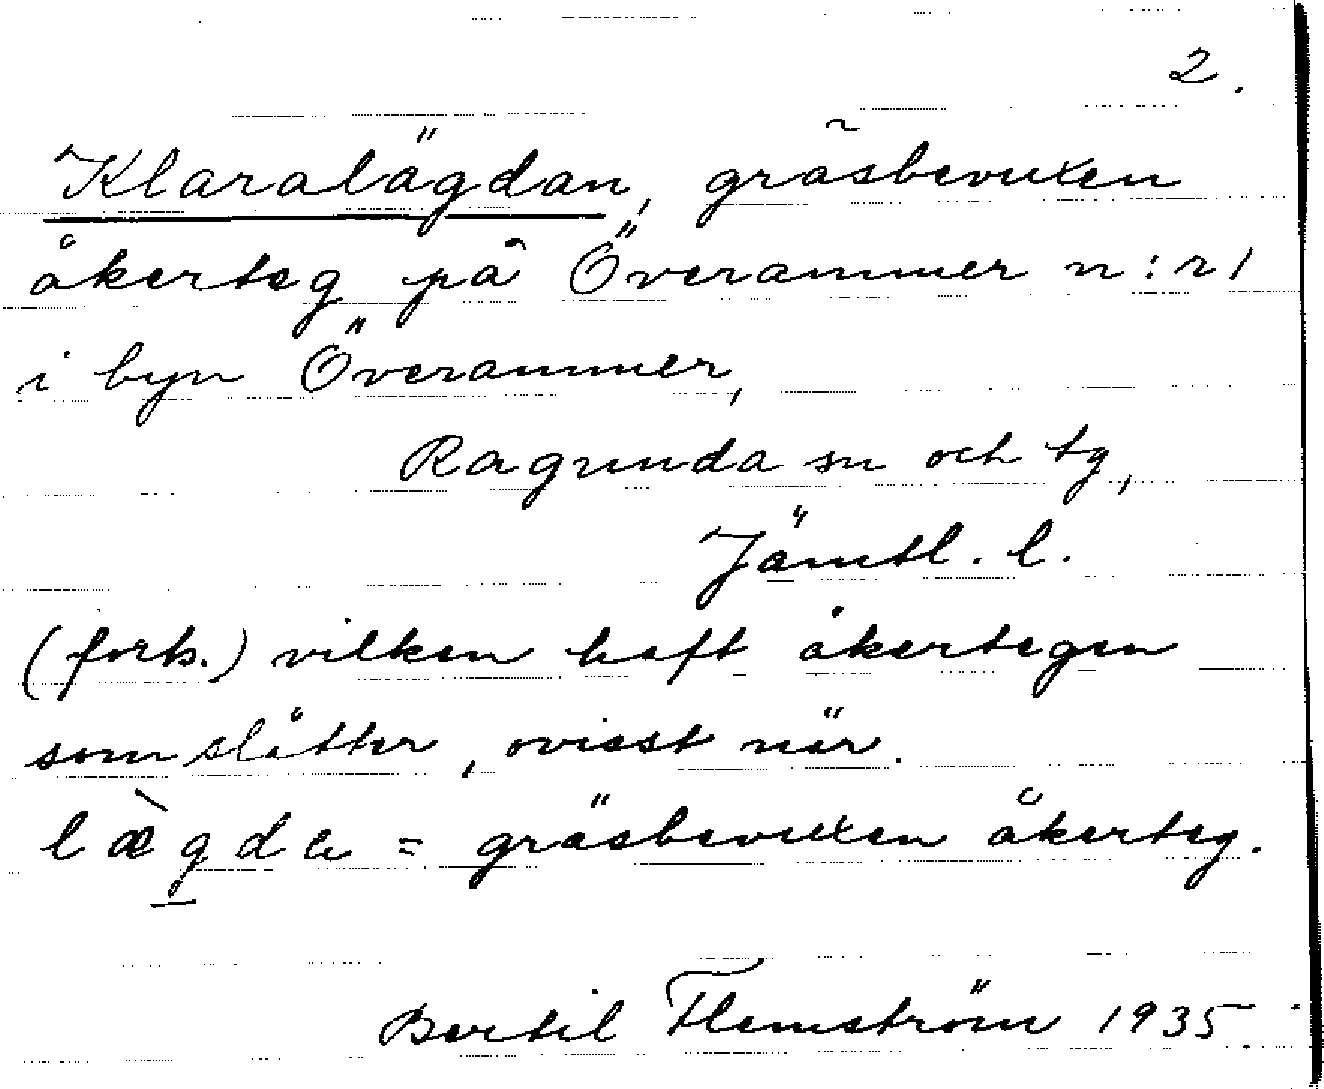 2.
Klaralägdan, gräsbevuxen
åkerteg på Överammer n:r 1
i byn Överammer,
Ragunda sn och tg,
Jämtl. l.
(forts.) vilken haft åkertegen
som slåtter, ovisst när.
lægda = gräsbevuxen åkerteg.
Bertil Flemström 1935